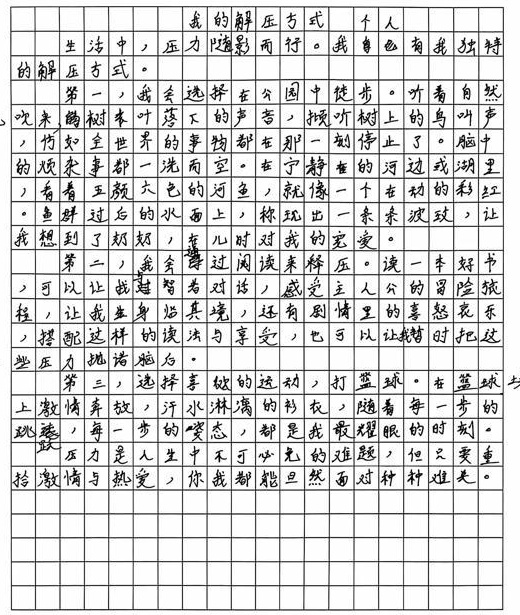 我的解压方式 个人
生活中，压力随影而行。我自也有我独特
的解压方式。
第一，我会选择在公园中徒步。听着自然
吹来，的树木叶落下的声音，倾听树上的鸟叫声
，仿如全世界的事物都在那一刻停止了。脑中
的烦杂事都一洗而空。在宁静在的河边或湖里
，看着五颜六色的河鱼，就像一个在动的彩红
。鱼群过后的水面上，称现出一条条波玟，让
我想到了奶奶，在儿时对我的宠爱。
第二，我会通过阅读来释压。读一本好书
，可以让我与智者对话，感受主人公的冒险旅
程，让我生身临其境，还有剧情里的喜怒哀乐
，搭配这样的读法与享受，也可以让我暂时把这
些压力抛诸脑后。
第三，选择喜欢的运动，打篮球。在篮球
上激情奔放，汗水淋漓的衫衣，随着每一步的
跳跃，每一步的姿态，都是我最耀眼的时刻。
压力是人生中不可必免的难题，但只要重
拾激情与热爱，你我都能旦然面对种种难关。